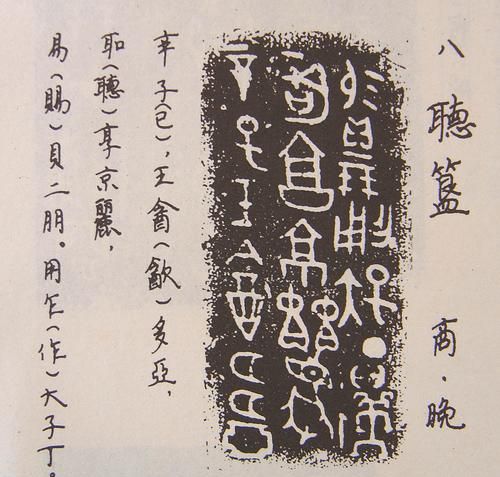 八 聽簋 商·晚
辛子(巳),王酓(㱃)多亞,
𦔻(聽)享京麗,
易(賜)貝二朋。用乍(作)大子丁。